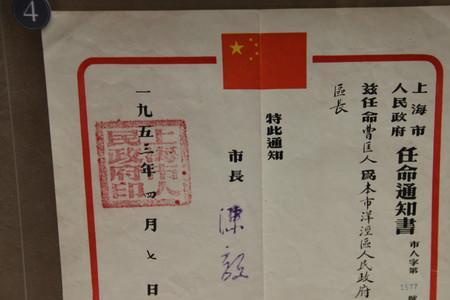 4
上海市
人民政府
任命通知書
市人字第1577號
茲任命曹匡人爲本市洋涇區人民政府
區長
特此通知
市長
陳毅
一九五三年四月七日
上海市人
民政府印